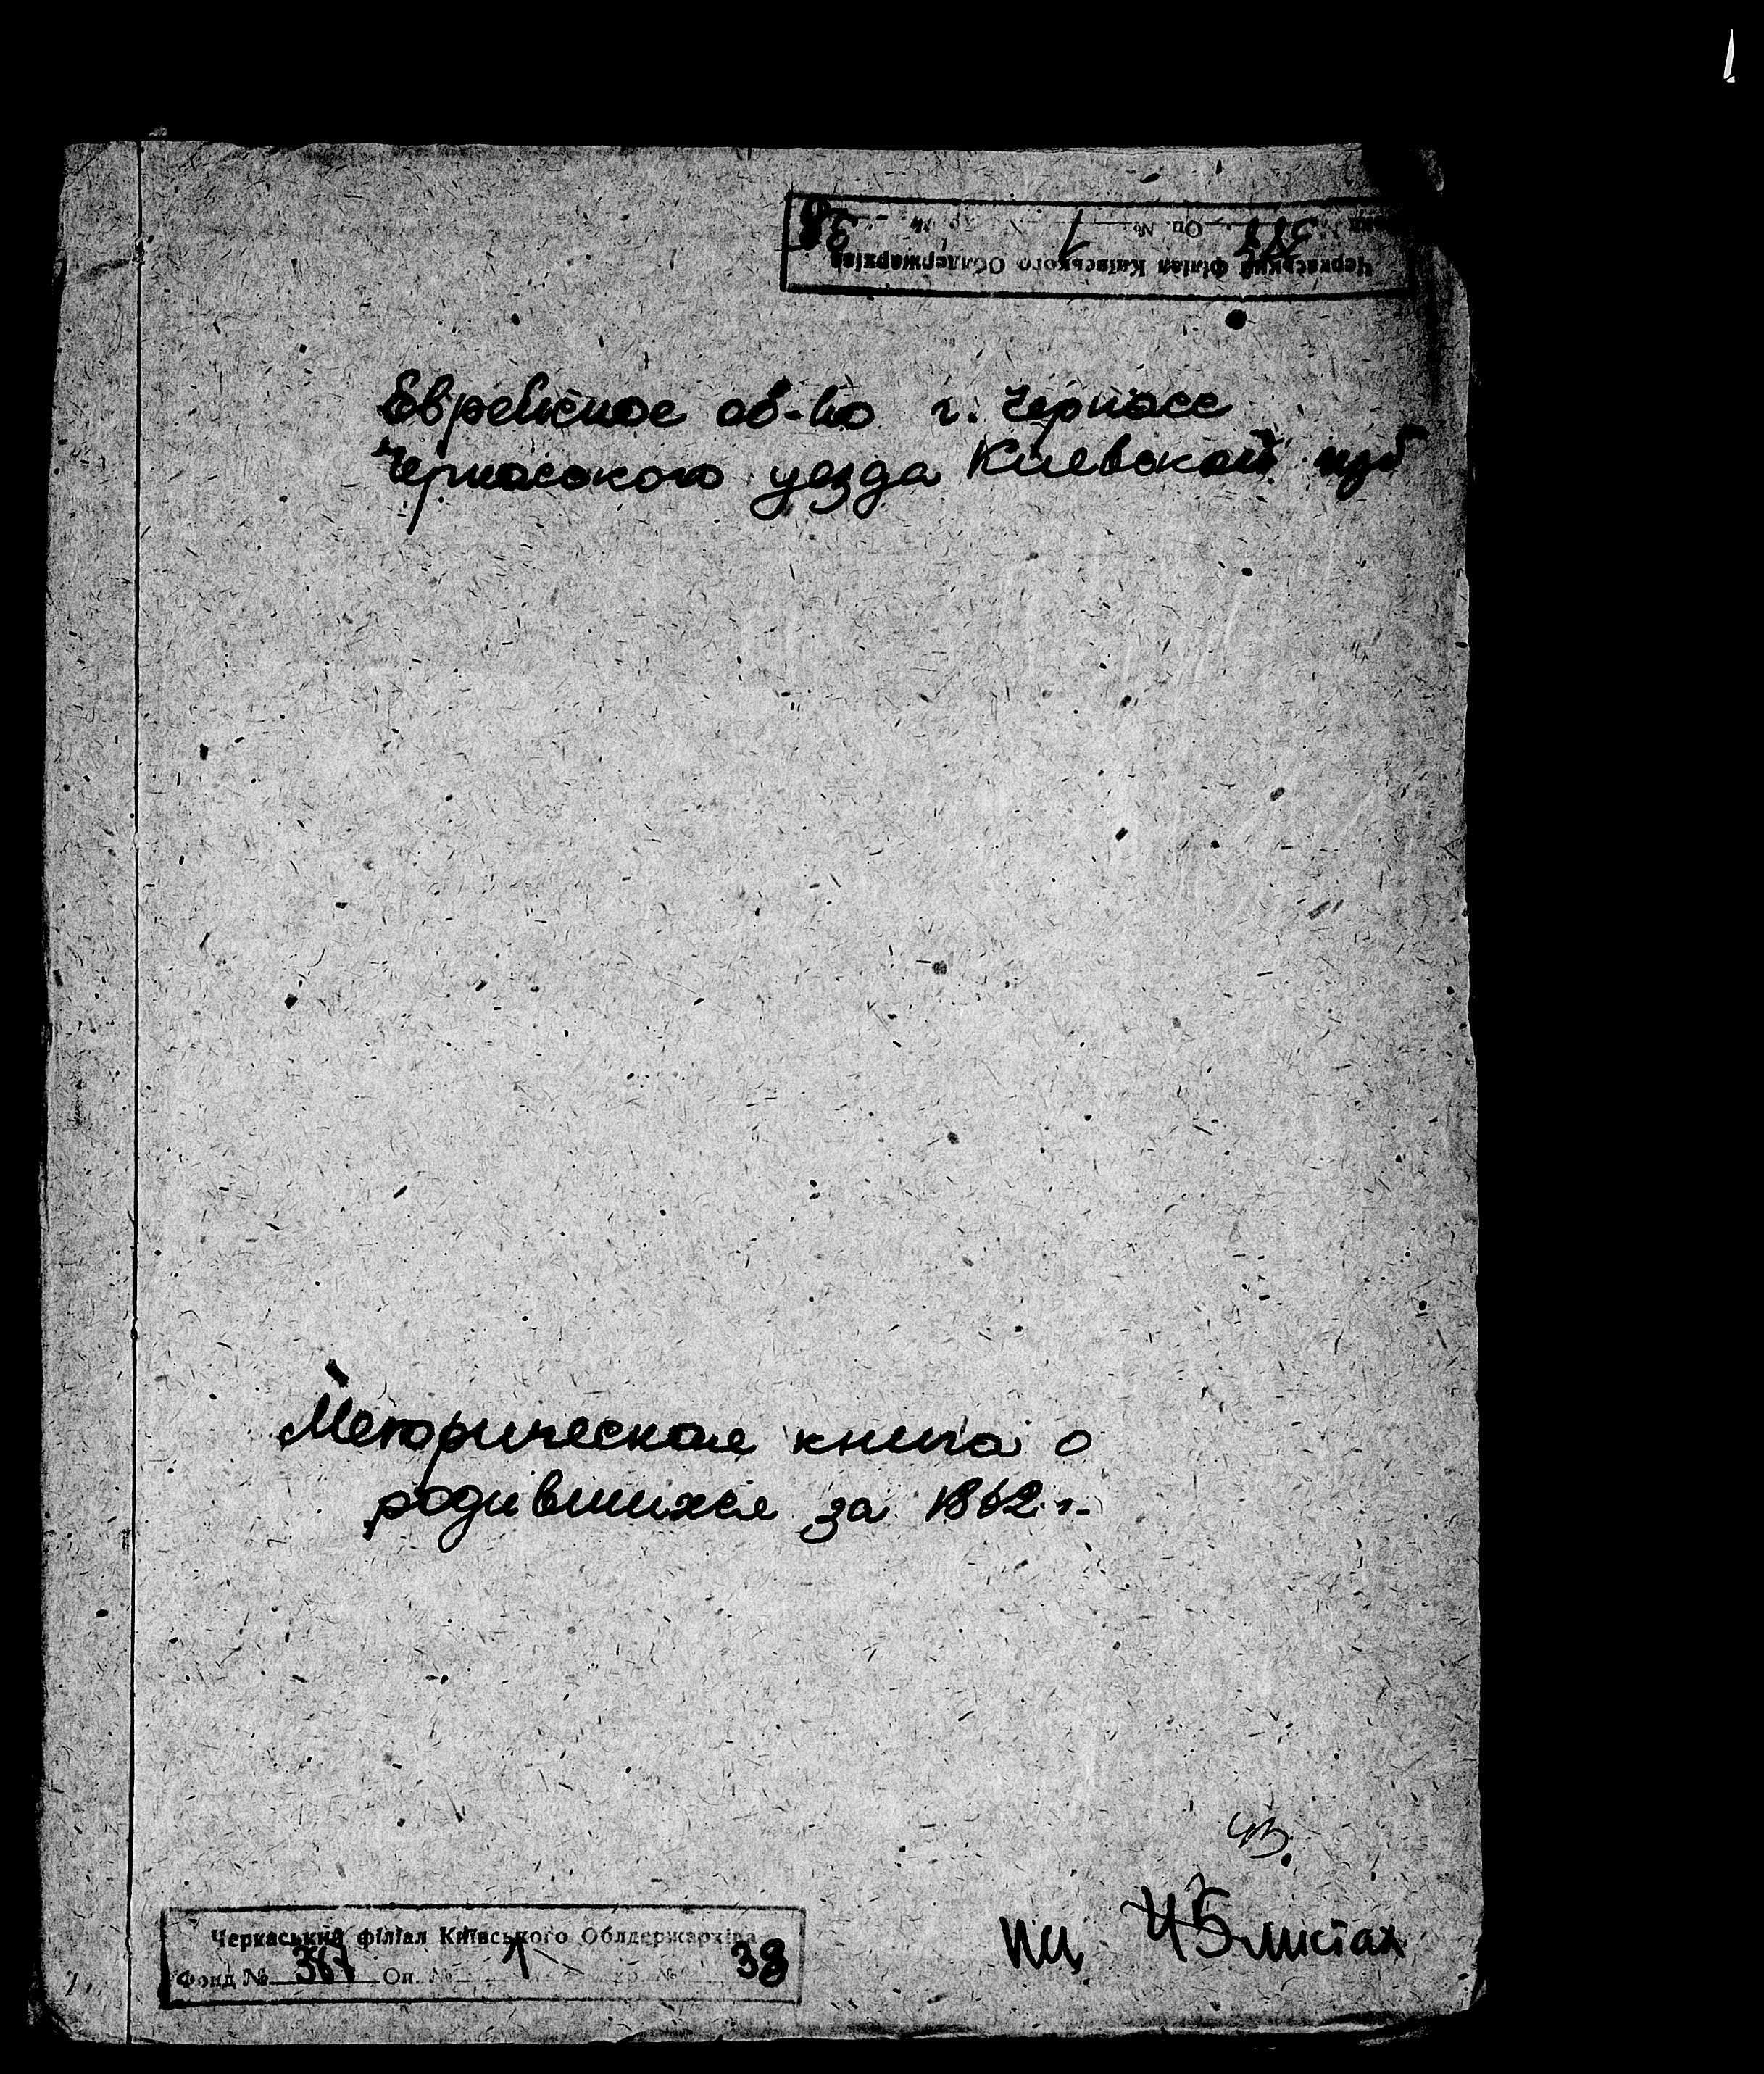 Черкаський філіал Київського Облдержархіва
Оп. № 1 38
Еврейское об-во г. Черкасс
Черкасского уезда Киевской губ
Метрическая книга о
родившихся за 1862 г.
43.
на 45 листах
Черкаський філіал Київського Облдержархіва
Фонд № 367 Оп. № 1 38